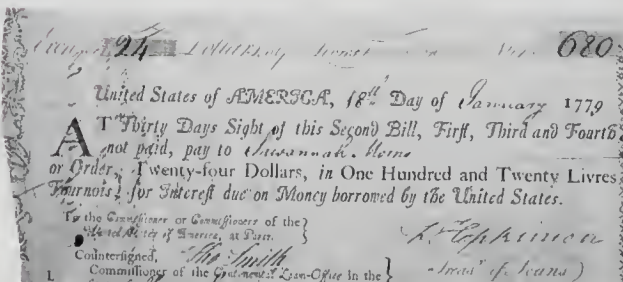 24 680
United States of AMERICA, 18th Day of January 1779
AT Thirty Days Sight of this Second Bill, First, Third and Fourth
not paid, pay to Susannah
or Order, Twenty-four Dollars, in One Hundred and Twenty Livres
Tournois, for Interest due on Money borrowed by the United States.
To the Commissioner or Commissioners of the }
United States of America, at Paris. }
F Hopkinson
Countersigned, Tho Smith
Treasr of Loans )
Commissioner of the Continental Loan-Office in the }